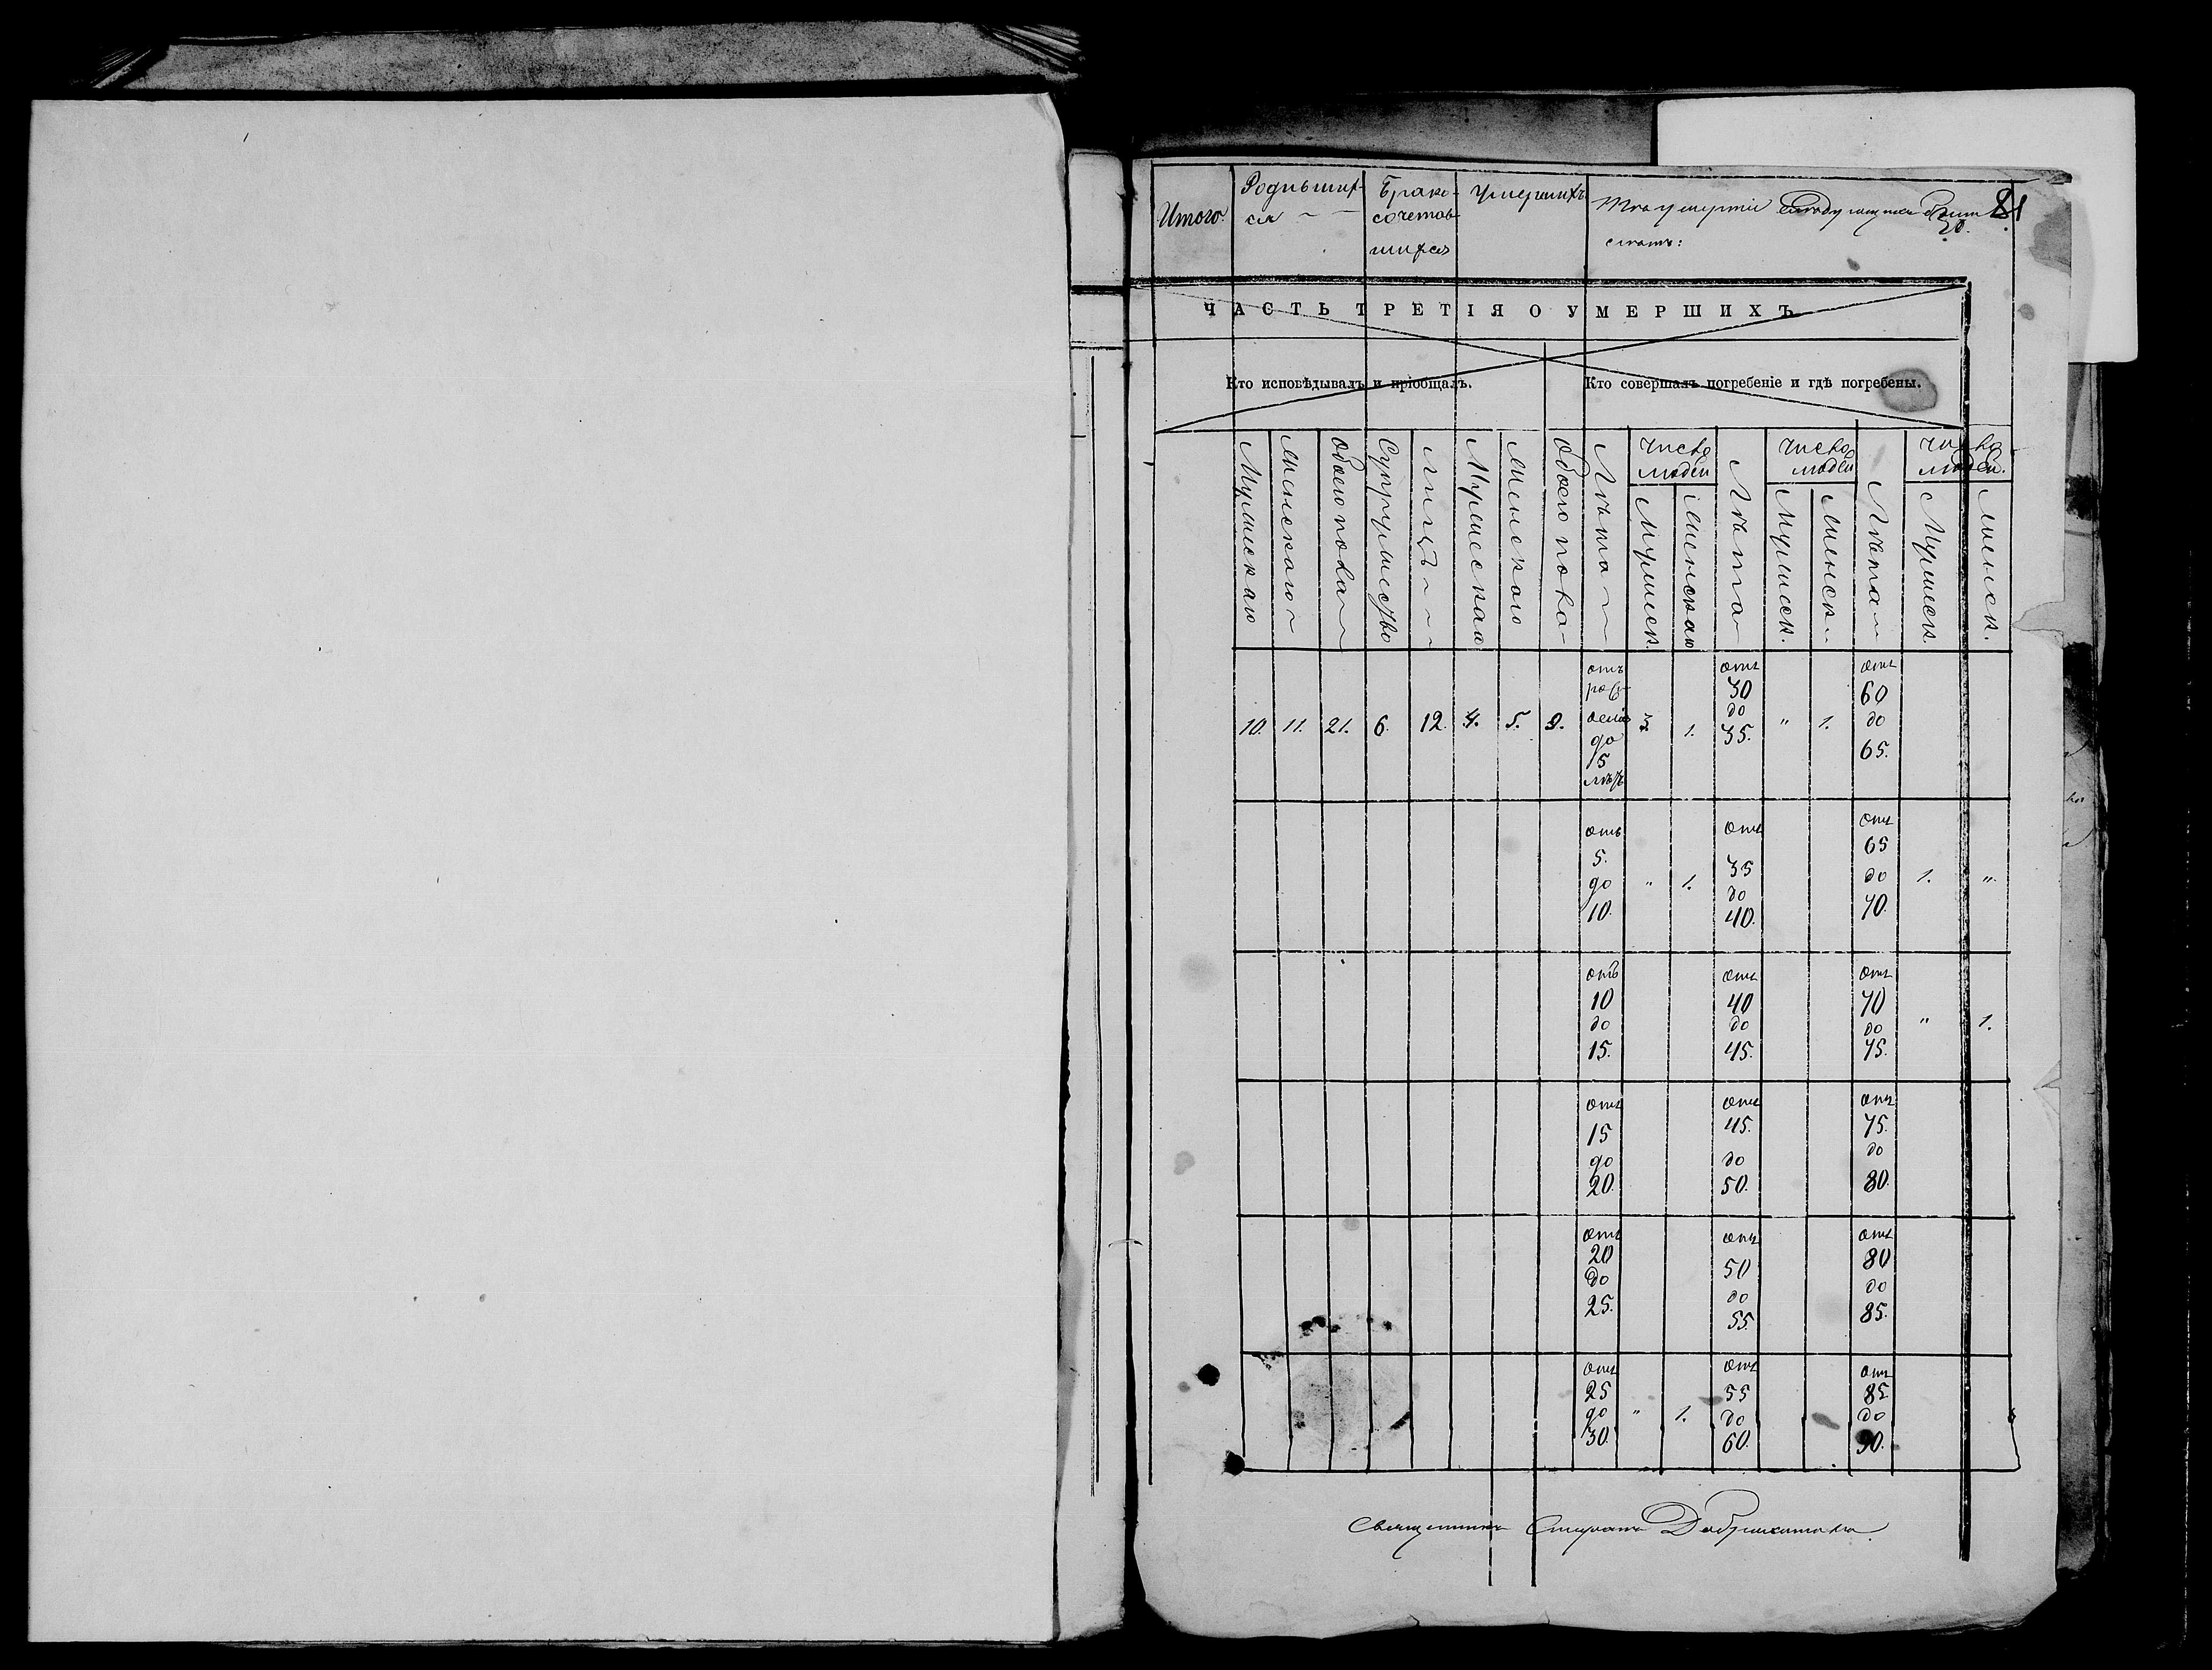 Итого.
Родивших-
ся
Брако-
сочетав-
шихся
Умершихъ
81
20.
ЧАСТЬ ТРЕТІЯ О УМЕРШИХЪ
Кто исповѣдывалъ и пріобщалъ.
Кто совершалъ погребеніе и гдѣ погребены.
Мужскаго
Женскаго
Обоего пола
Супружество
Лицъ
Мужескаго
Женскаго
Обоего пола
Лѣта
Число людей
Мужеск.
Женскаго
Лѣта
Число людей
Мужеск.
Женск.
Лѣта
Число людей.
Мужеск.
Женск.
10. 11. 21. 6. 12. 4. 5. 9. отъ рождения до 5 лѣтъ 3. 1. отъ 30 до 35. " 1. отъ 60 до 65.
отъ 5. до 10. " 1. отъ 35 до 40. отъ 65 до 70. 1. "
отъ 10 до 15. отъ 40 до 45. отъ 70 до 75. " 1.
отъ 15 до 20. отъ 45. до 50. отъ 75. до 80.
отъ 20 до 25. отъ 50 до 55. отъ 80 до 85.
отъ 25 до 30. " 1. отъ 55 до 60. отъ 85 до 90.
Священникъ